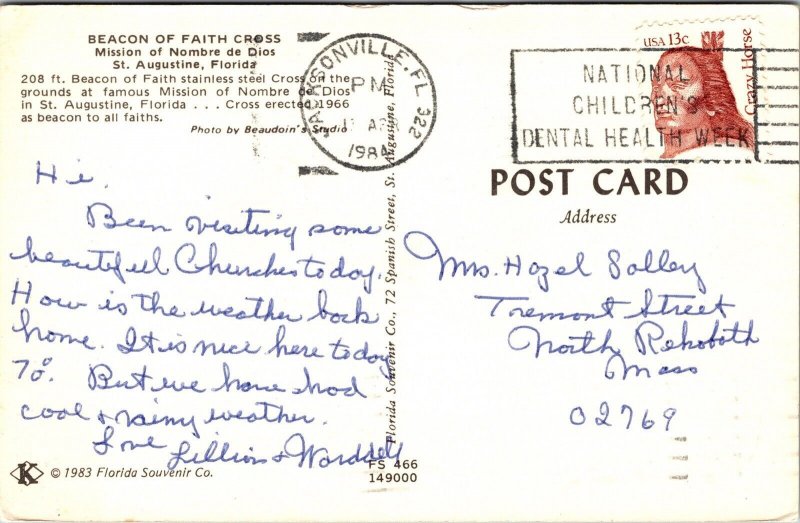 BEACON OF FAITH CROSS
Mission of Nombre de Dios
St. Augustine, Florida
208 ft. Beacon of Faith stainless steel Cross on the
grounds at famous Mission of Nombre de Dios
in St. Augustine, Florida . . . Cross erected 1966
as beacon to all faiths.
Photo by Beaudoin's Studio
JACKSONVILLE, FL 322
PM
17 APR
1984
USA 13c
Crazy Horse
NATIONAL
CHILDREN'S
DENTAL HEALTH WEEK
POST CARD
Address
Hi,
Been visiting some
beautiful Churches today.
How is the weather back
home. It is nice here today
70°. But we have had
cool & rainy weather.
Love
Lillian & Wardell
Mrs. Hazel Salley
Tremont Street
North Rehoboth
Mass
02769
Florida Souvenir Co., 72 Spanish Street, St. Augustine, Florida
K © 1983 Florida Souvenir Co.
FS 466
149000